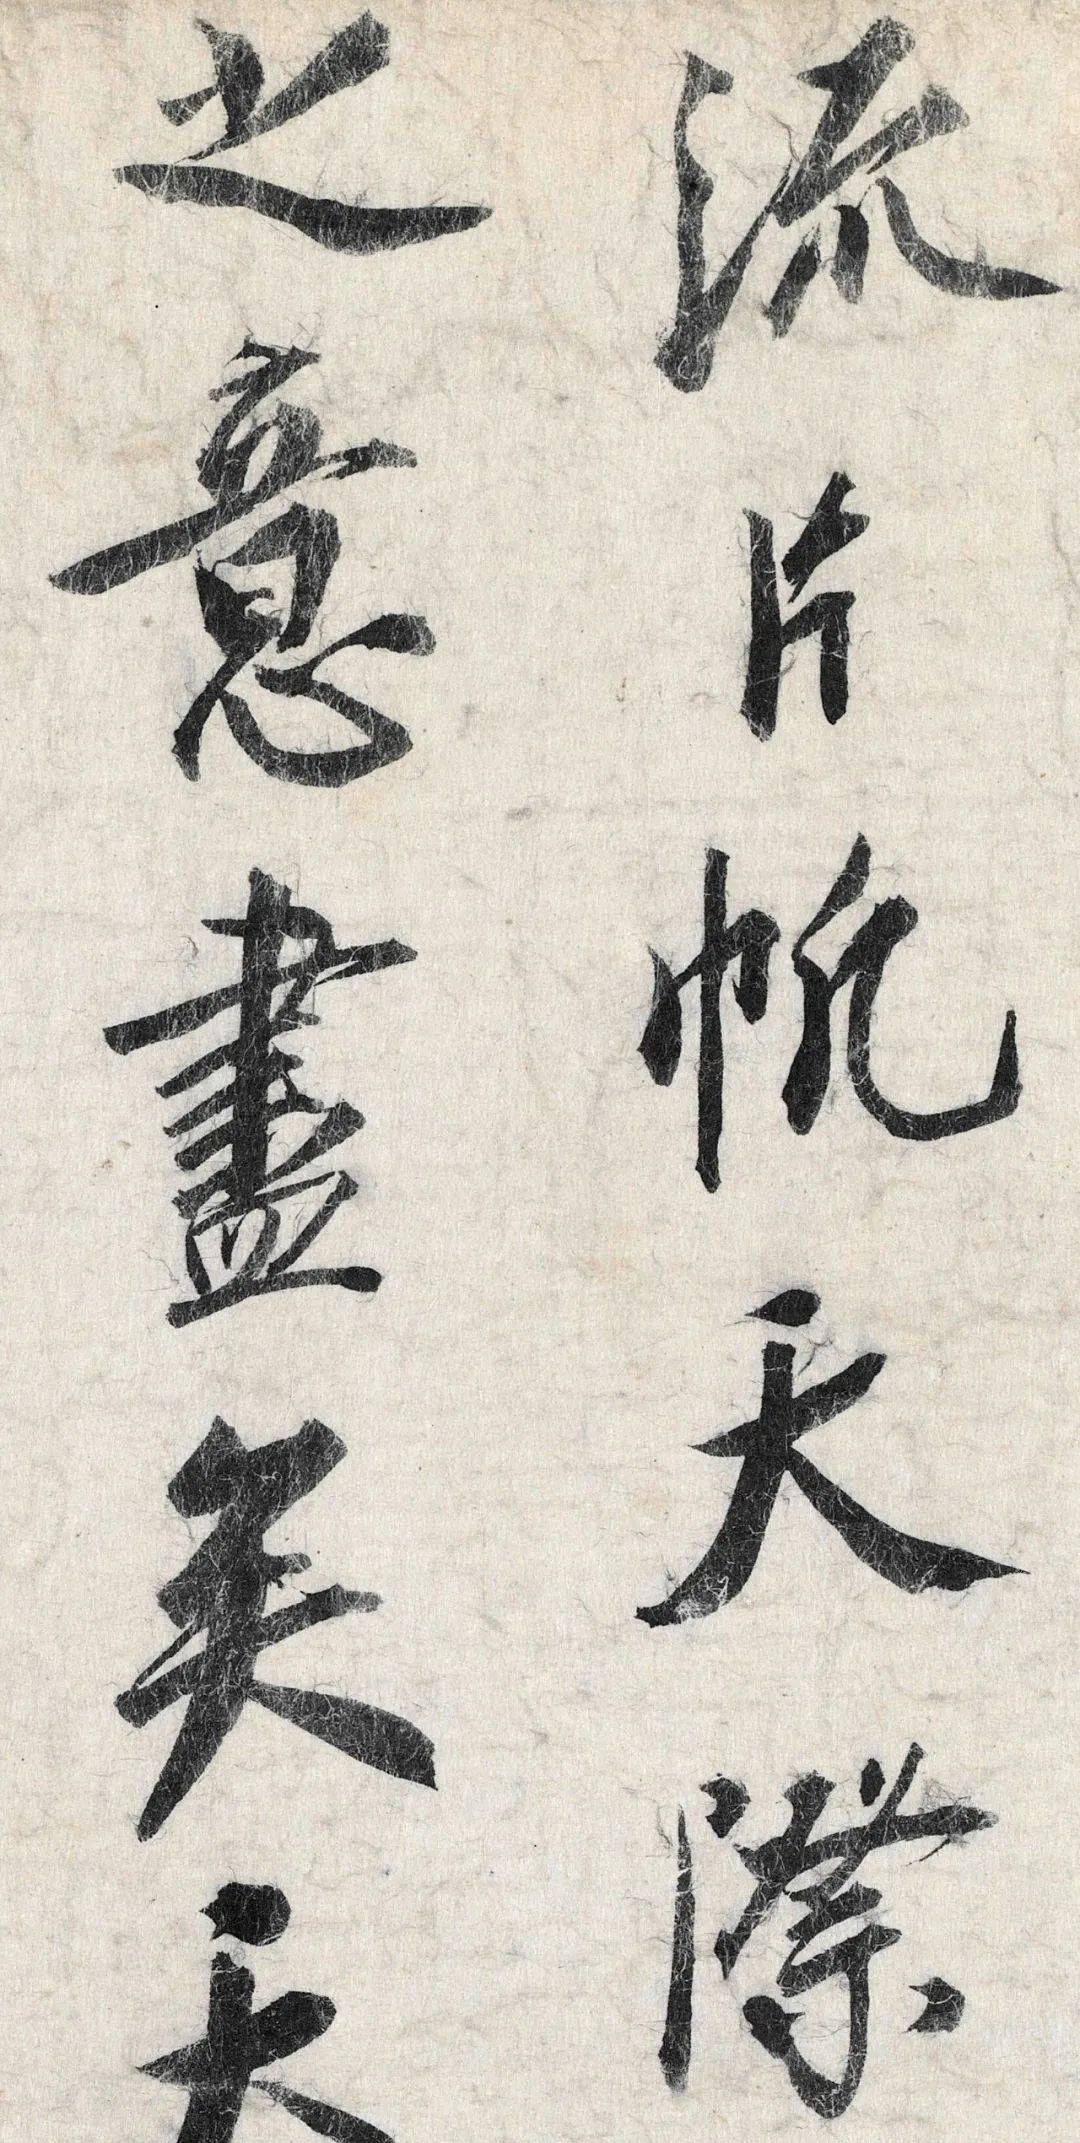 流片帆天際
之意盡矣天